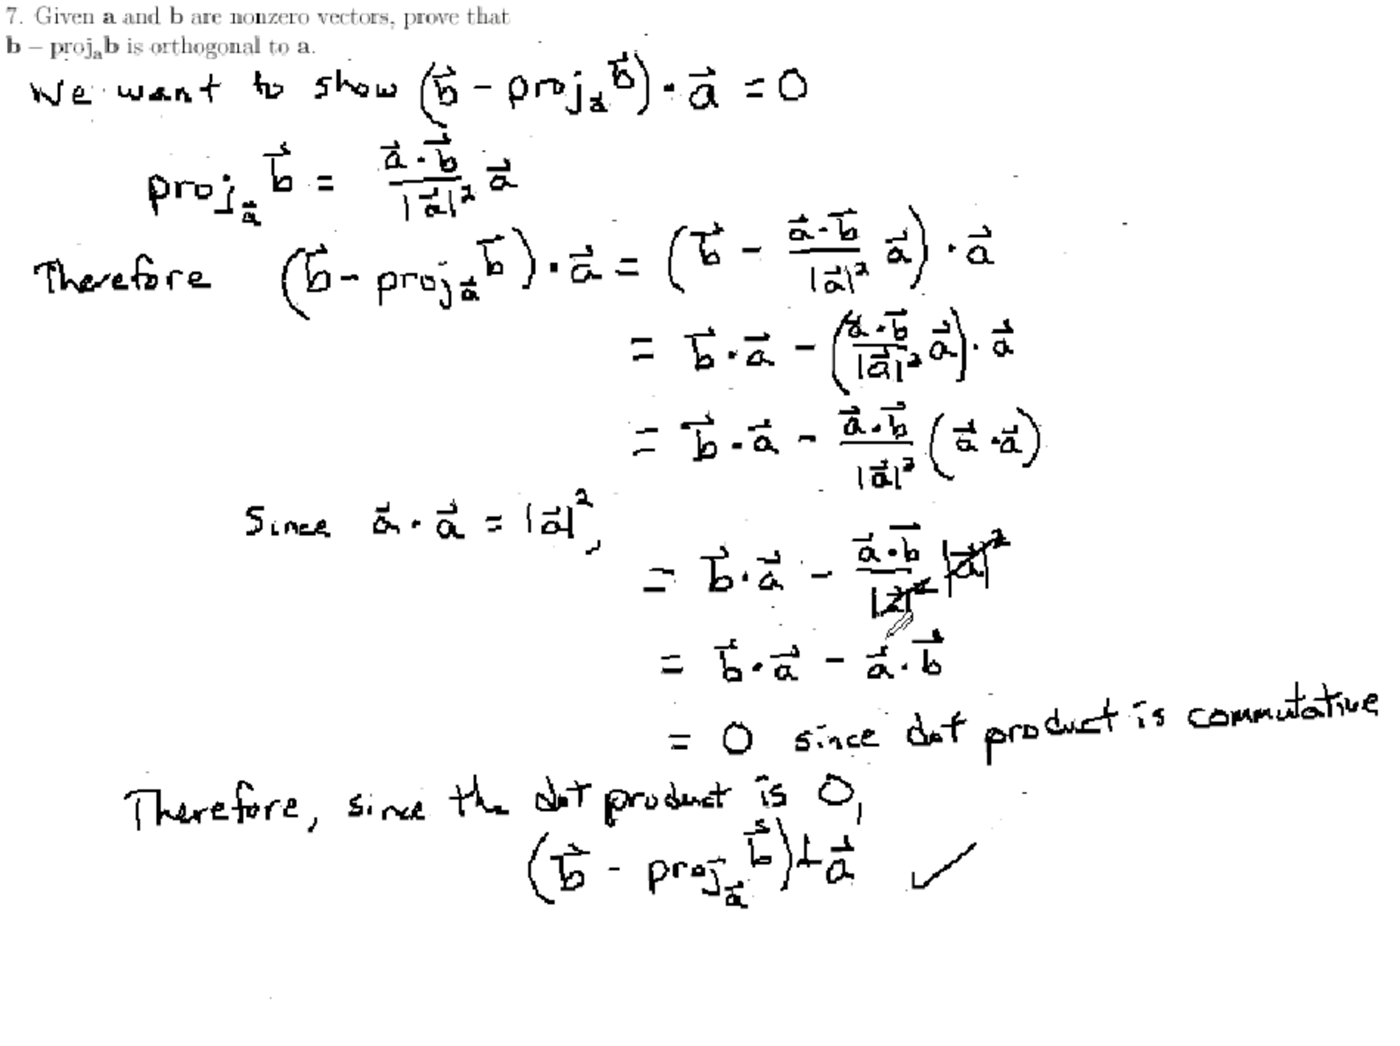 7. Given a and b are nonzero vectors, prove that
b – projₐb is orthogonal to a.
We want to show (b⃗ - proj_a⃗ b⃗) · a⃗ = 0
proj_a⃗ b⃗ = (a⃗ · b⃗)/|a⃗|² a⃗
Therefore (b⃗ - proj_a⃗ b⃗) · a⃗ = (b⃗ - (a⃗ · b⃗)/|a⃗|² a⃗) · a⃗
= b⃗ · a⃗ - ((a⃗ · b⃗)/|a⃗|² a⃗) · a⃗
= b⃗ · a⃗ - (a⃗ · b⃗)/|a⃗|² (a⃗ · a⃗)
Since a⃗ · a⃗ = |a⃗|²,
= b⃗ · a⃗ - (a⃗ · b⃗)/|a⃗|² |a⃗|²
= b⃗ · a⃗ - a⃗ · b⃗
= 0 since dot product is commutative
Therefore, since the dot product is 0,
(b⃗ - proj_a⃗ b⃗) ⊥ a⃗ ✓